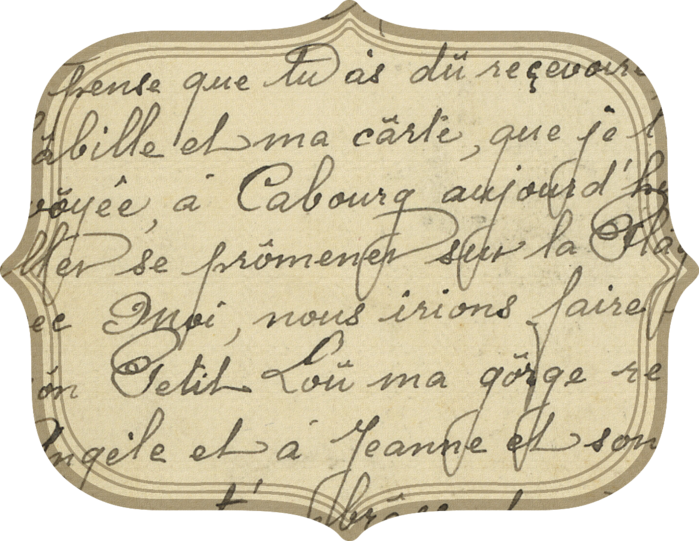 pense que tu as dû reçevoire
âbille et ma cârte, que je t
vôyée, à Cabourg aujourd'hu
ller se prômener sur la Plâg
ec moi, nous irions faire
ôn Petit Loû ma gôrge re
Angèle et à Jeanne et son